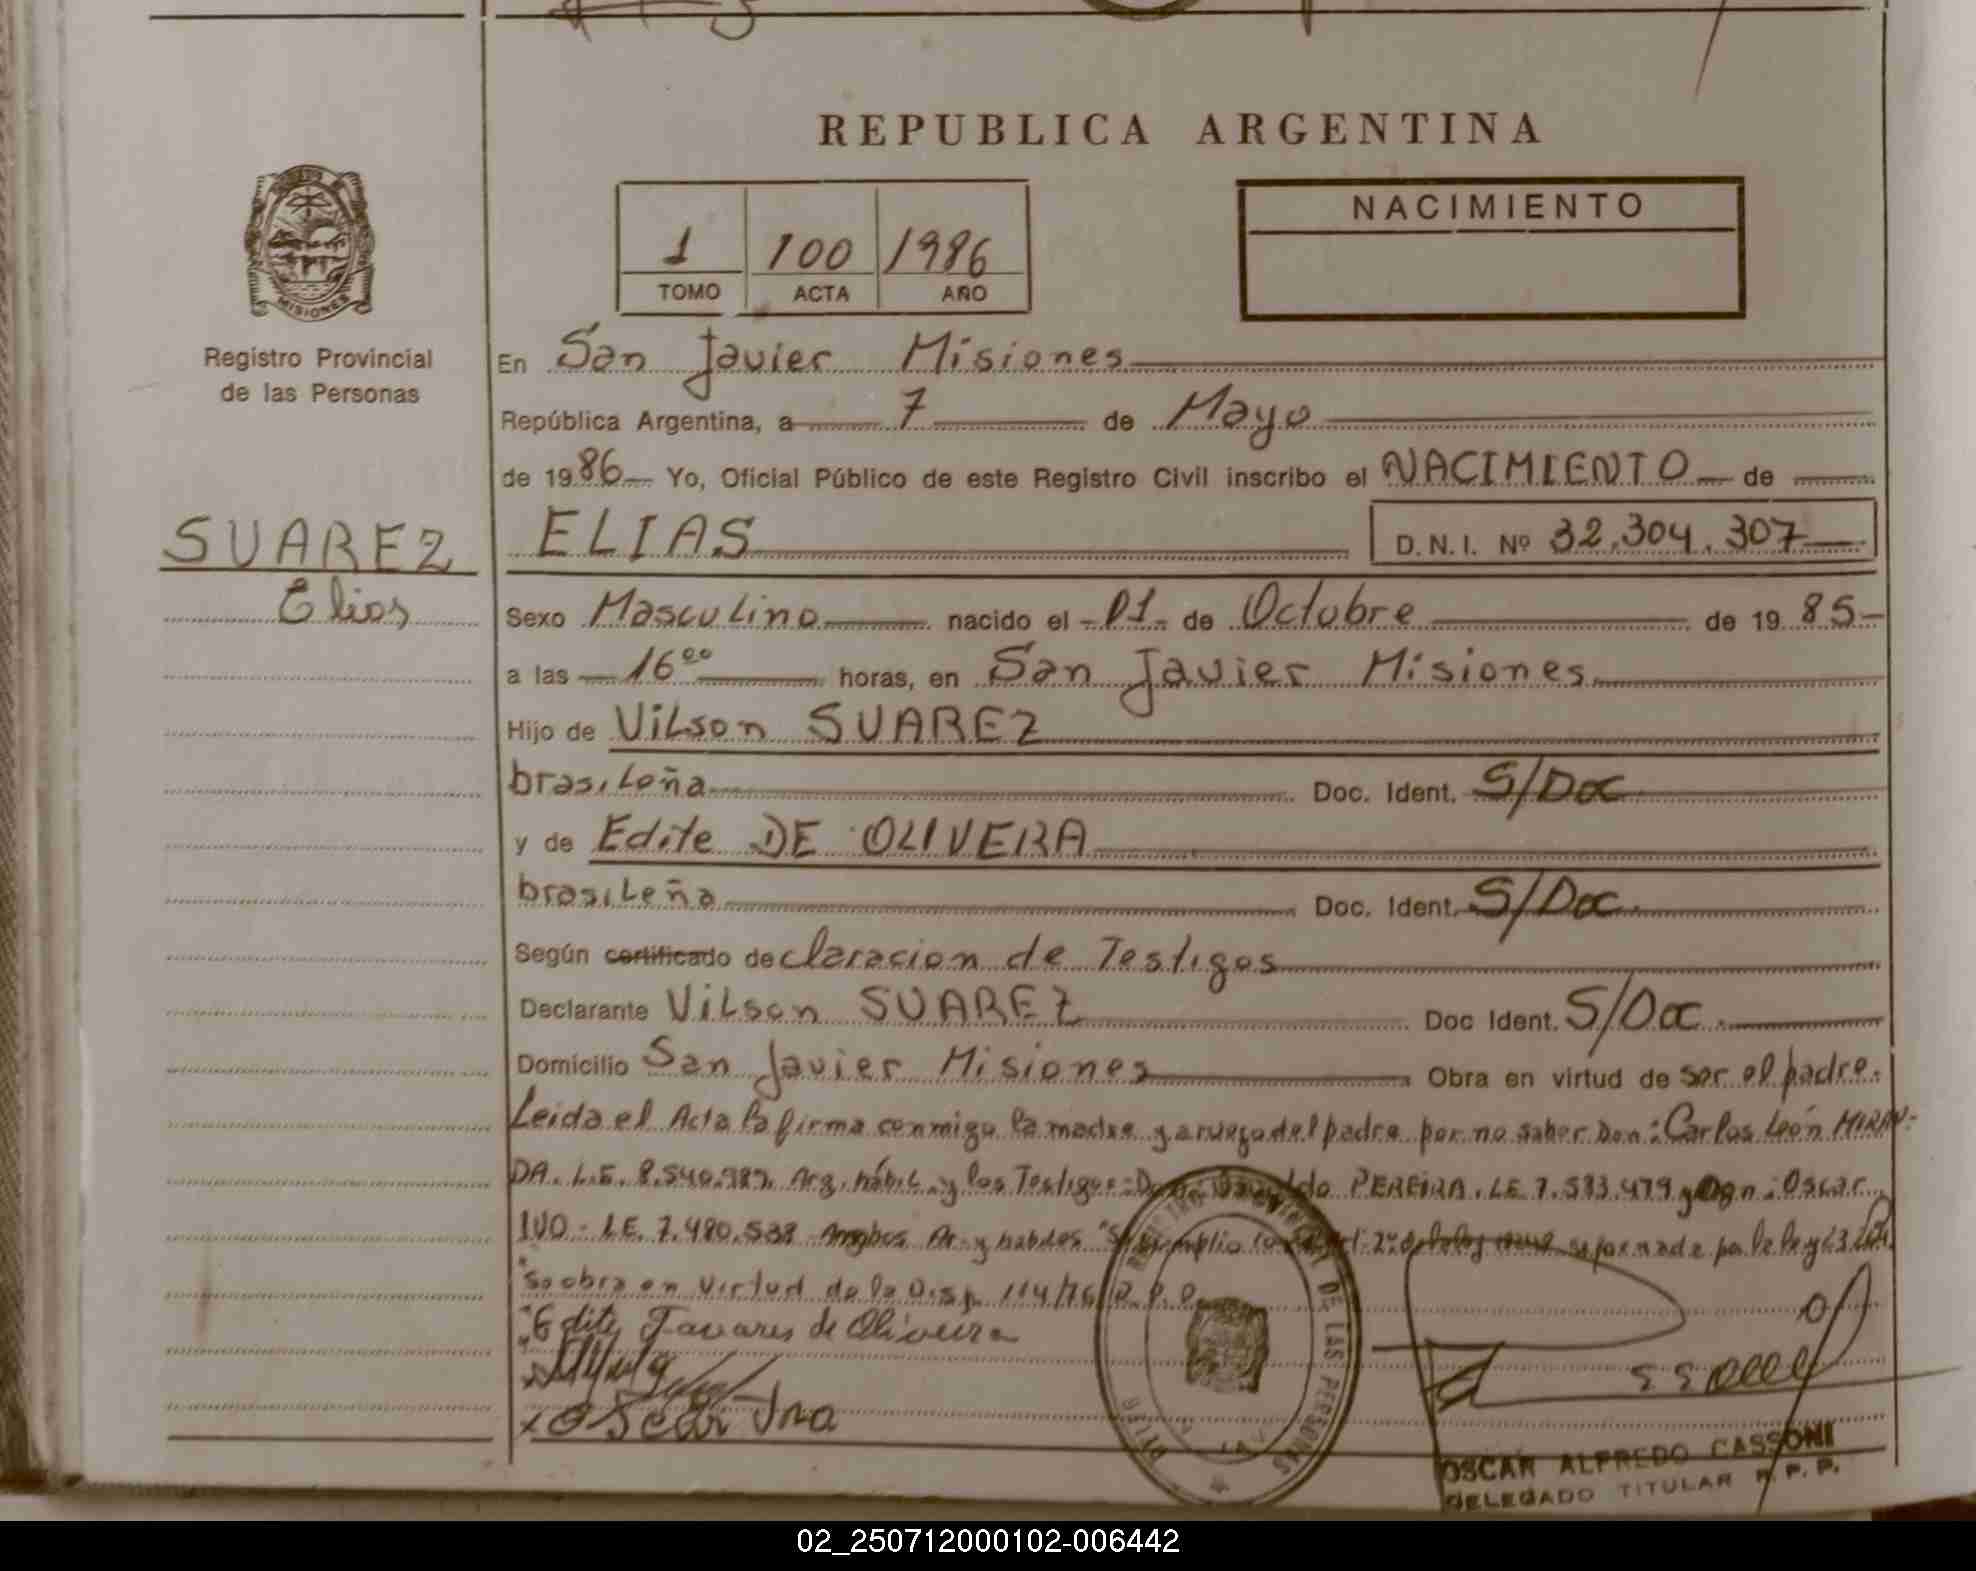 REPUBLICA ARGENTINA
NACIMIENTO
1 100 1986
TOMO ACTA AÑO
MISIONES
Registro Provincial
de las Personas
En San Javier Misiones
República Argentina, a 7 de Mayo
de 1986 Yo, Oficial Público de este Registro Civil inscribo el NACIMIENTO de
SUAREZ
Elias
ELIAS D.N.I. Nº 32.304.307
Sexo Masculino nacido el 01 de Octubre de 1985
a las 16⁰⁰ horas, en San Javier Misiones
Hijo de Vilson SUAREZ
brasileña Doc. Ident. S/Doc
y de Edite DE OLIVERA
brasileña Doc. Ident. S/Doc.
Según certificado declaracion de Testigos
Declarante Vilson SUAREZ Doc Ident. S/Doc.
Domicilio San Javier Misiones Obra en virtud de ser el padre.
Leida el Acta la firma conmigo la madre y a ruego del padre por no saber Don: Carlos León MIRAN-
DA. L.E. 8.540.987. Arg. hábil y los Testigos: PEREIRA. LE 7.583.479 y Don: Oscar
IVO - LE. 7.480.538 Ambos Ar. y habiles reformada por la ley
se obra en virtud de la Disp. 114/76 R.P.P.
Edite Tavares de Oliveira
x Oscar Ivo
DE LAS PERSONAS
OSCAR ALFREDO CASSONI
DELEGADO TITULAR R.P.P.
02_250712000102-006442